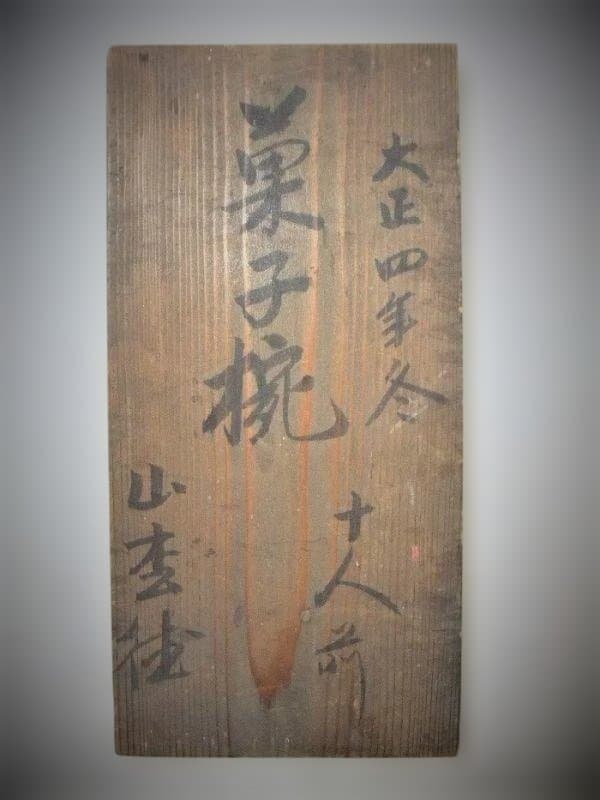 大正四年冬
菓子椀
十人前
山杢徳